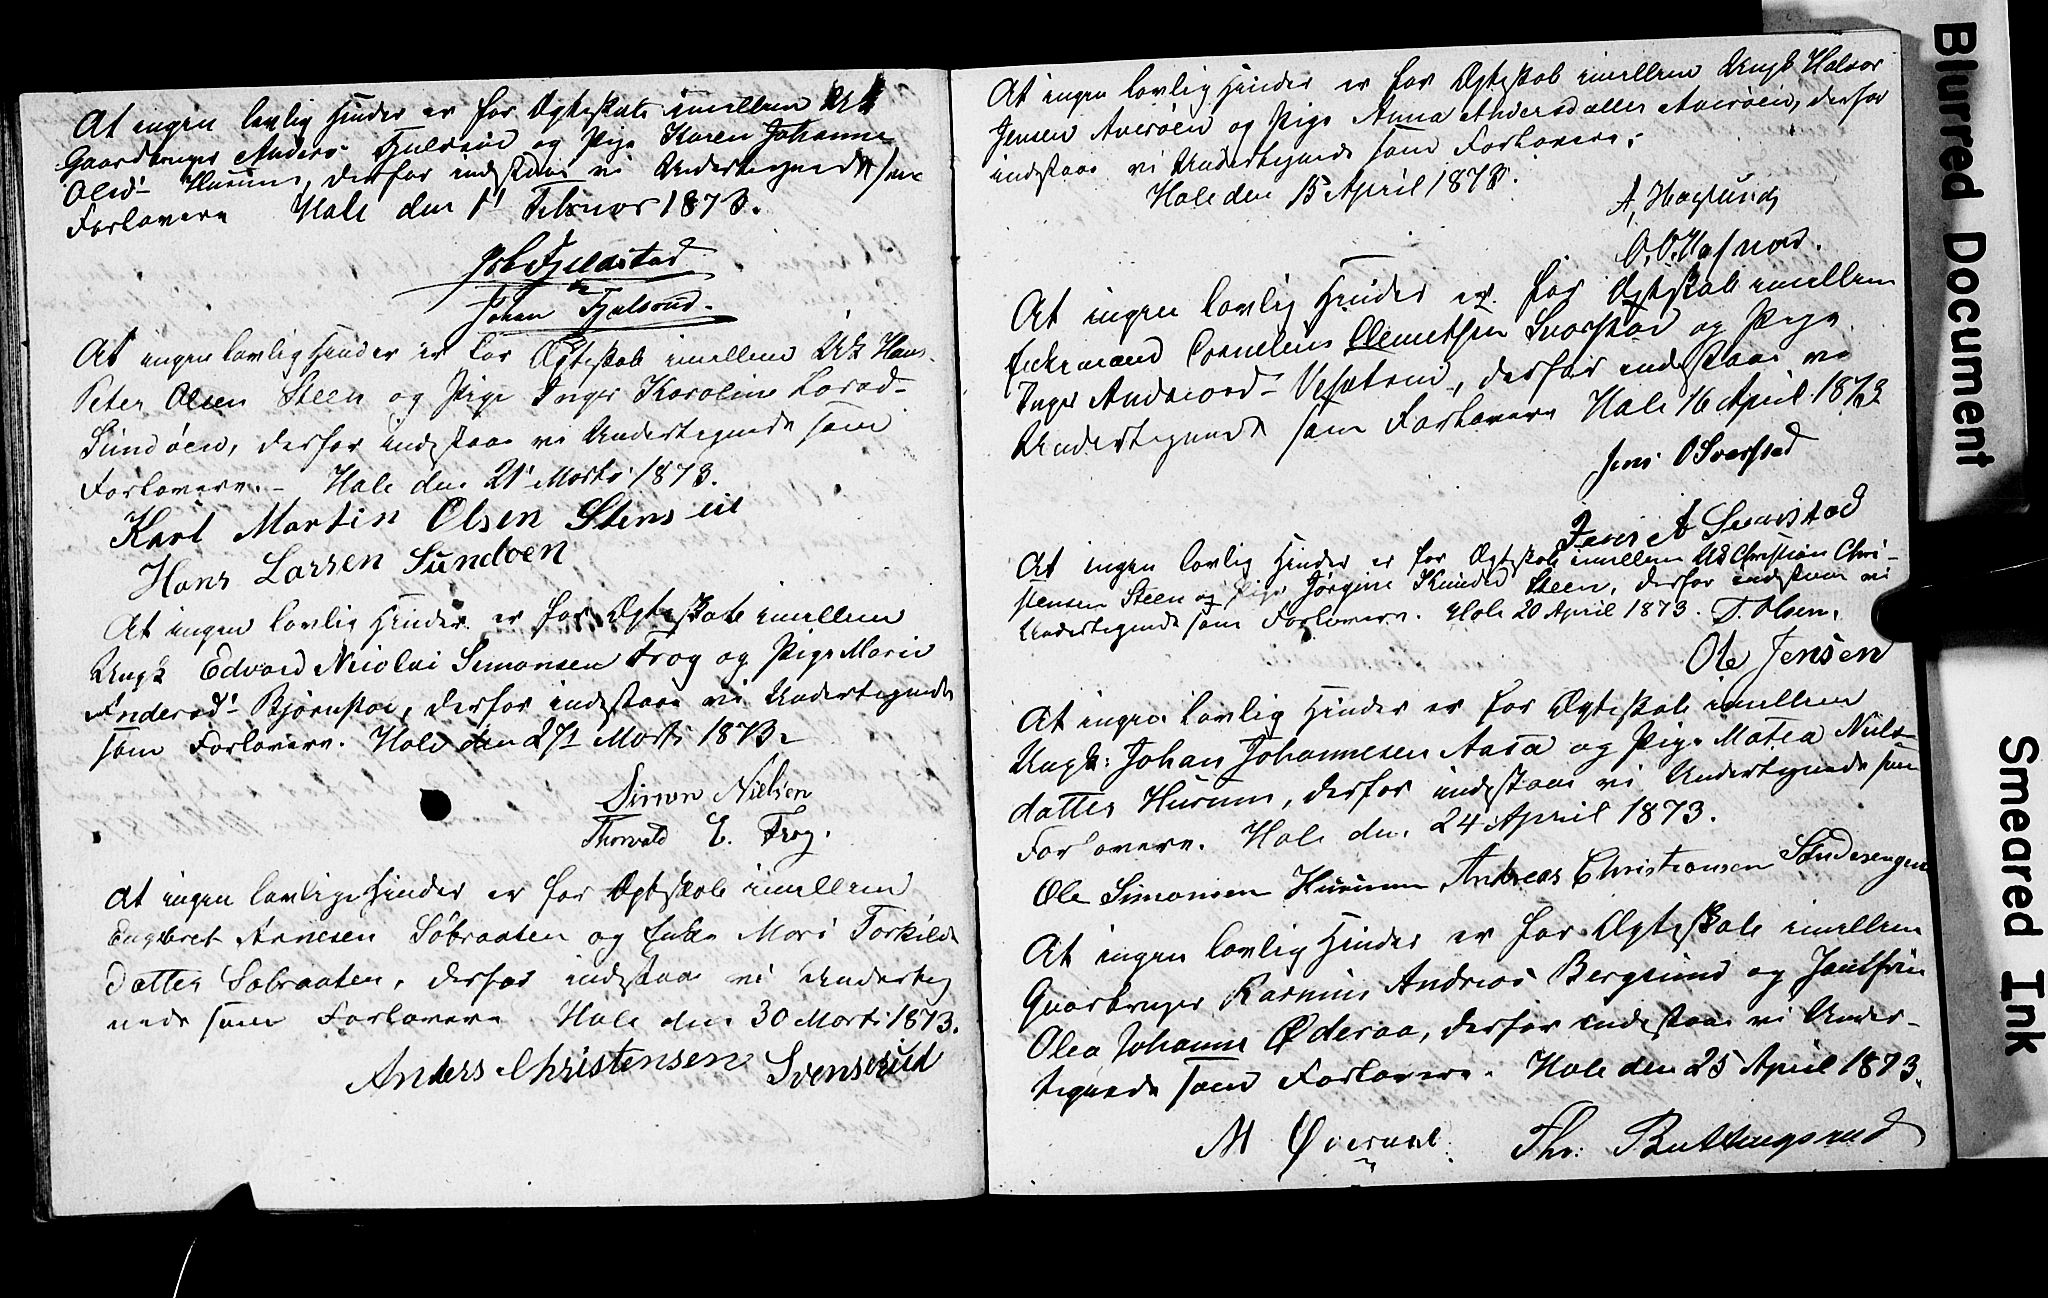 At ingen lovlig Hinder er for Ægteskab imellem Uk
Gaardbruger Anders Fjulsrud og Pige Karen Johanne
Olsd. Hurum, derfor indstaar vi Undertegnede som
Forlovere Hole den 1' Februar 1873.
Fjeldstad
Johan Fjulsrud.
At ingen lovlig Hinder er for Ægteskab imellem Uk Hans
Peter Olsen Steen og Pige Inger Karoline Larsd-
Sundøen, derfor indstaar vi Undertegnede som
Forlovere. - Hole den 21' Marts 1873.
Karl Martin Olsen Stens eie
Hans Larsen Sundøen
At ingen lovlig Hinder er for Ægteskab imellem
Ungk Edvard Nicolai Simonsen Frog og Pige Marie
Andersd' Bjørnstad, derfor indstaar vi Undertegnede
som Forlovere. Hole den 27' Marts 1873.
Simon Nielsen
Thorvald E. Frog.
At ingen lovlige Hinder er for Ægteskab imellem
Engebret Arnesen Søbraaten og Enke Mari Torkilds
datter Søbraaten, derfor indstaar vi Underteg
nede som Forlovere Hole den 30 Marts 1873.
Anders Christensen Svensrud
At ingen lovlig Hinder er for Ægteskab imellem Ungk Halvor
Jensen Averøen og Pige Anna Andersdatter Averøen, derfor
indstaar vi Undertegnede som Forlovere.
Hole den 15 April 1873.
A. Haglund
O. O. Hafnord.
At ingen lovlig Hinder er for Ægteskab imellem
Enkemand Cornelius Clemetsen Svarstad og Pige
Inger Andersd- Vestern, derfor indstaar vi
Undertegnede som Forlovere Hole 16 April 1873
Jens O Svarstad
A Svarstad
At ingen lovlig Hinder er for Ægteskab imellem Uk Christian Chri-
stensen Steen og Pige Jørgine Knudsd Steen, derfor indstaar vi
Undertegnede som Forlovere. Hole 20 April 1873. T. Olsen.
Ole Jensen
At ingen lovlig Hinder er for Ægteskab imellem
Ungk: Johan Johannesen Aasa og Pige Matea Niels-
datter Hurum, derfor indstaar vi Undertegnede som
Forlovere. Hole den 24 April 1873.
Ole Simonsen Hurum Andreas Christiansen Søndrengen
At ingen lovlig Hinder er for Ægteskab imellem
Gaardbruger Rasmus Andreas Bergsund og Jomfru
Olea Johanne Øderaa, derfor indstaar vi Under-
tegnede som Forlovere. Hole den 25 April 1873.
M Øderaae. Thv: Buttingsrud
Blurred Document
Smeared Ink